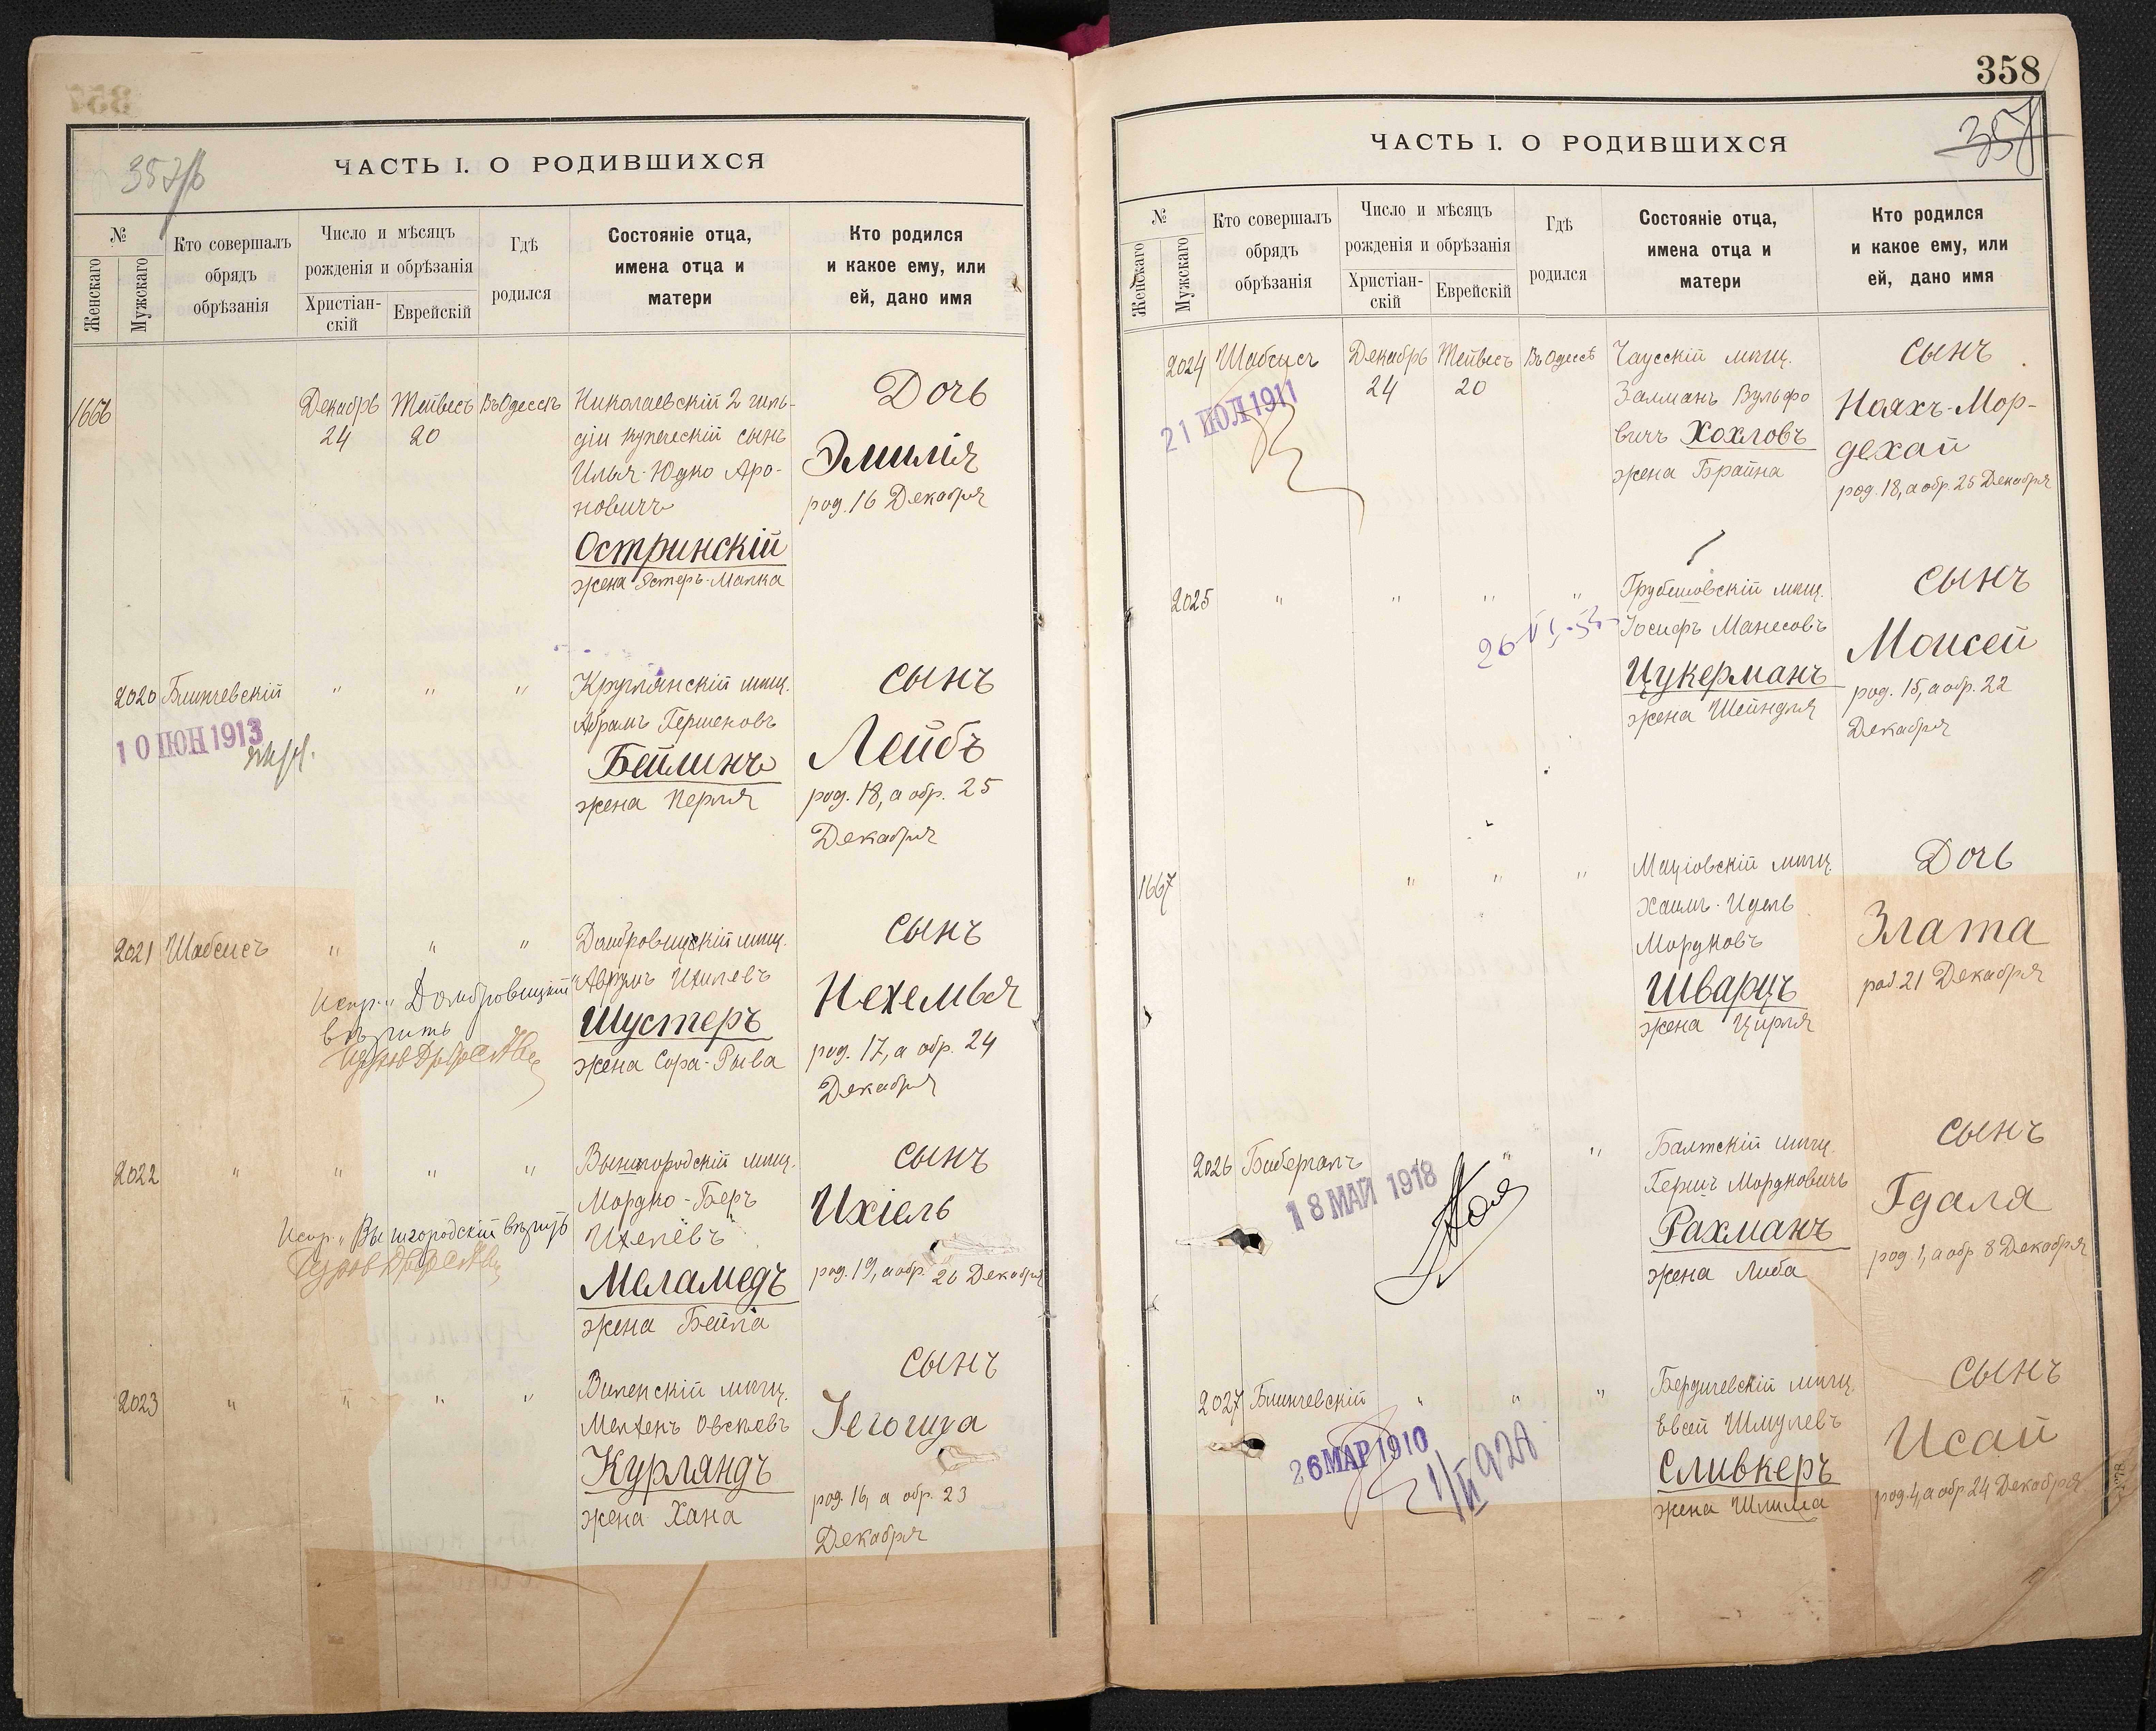 357/б
ЧАСТЬ I. О РОДИВШИХСЯ
№
Женскаго
Мужскаго
Кто совершалъ
обрядъ
обрѣзанія
Число и мѣсяцъ
рожденія и обрѣзанія
Христіан-
скій
Еврейскій
Гдѣ
родился
Состояніе отца,
имена отца и
матери
Кто родился
и какое ему, или
ей, дано имя
1666
Декабрь
24
Тейвесъ
20
Въ Одессѣ
Николаевскій 2 гиль-
діи купеческій сынъ
Илья-Юдко Аро-
новичъ
Остринскій
жена Эстеръ-Малка
Дочь
Эмилія
род. 16 Декабря
2020
Блинчевскій
10 ІЮН 1913
" " "
Круглянскій мѣщ.
Абрамъ Гершеновъ
Бейлинъ
жена Перля
сынъ
Лейбъ
род. 18, а обр. 25
Декабря
2021
Шабсисъ
" " "
Испр. "Домбровицкій"
вѣрить
Домбровицкій мѣщ.
Аврумъ Ихилевъ
Шустеръ
жена Сора-Рыва
сынъ
Нехемья
род. 17, а обр. 24
Декабря
2022
" " " "
Испр. "Вышгородскій" вѣрить
Вышгородскій мѣщ.
Мордко-Беръ
Ихелёвъ
Меламедъ
жена Бейла
сынъ
Ихіель
род. 19, а обр. 26 Декабря
2023
" " " "
Виленскій мѣщ.
Курляндъ
жена Хана
сынъ
Іегошуа
род. 16, а обр. 23
Декабря
358
357
ЧАСТЬ I. О РОДИВШИХСЯ
№
Женскаго
Мужскаго
Кто совершалъ
обрядъ
обрѣзанія
Число и мѣсяцъ
рожденія и обрѣзанія
Христіан-
скій
Еврейскій
Гдѣ
родился
Состояніе отца,
имена отца и
матери
Кто родился
и какое ему, или
ей, дано имя
2024
Шабсисъ
21 ІЮЛ 1911
Декабрь
24
Тейвесъ
20
Въ Одессѣ
Чаусскій мѣщ.
Залманъ Вульфо
вичъ Хохловъ
жена Брайна
сынъ
Ноахъ-Мор-
дехай
род. 18, а обр. 25 Декабря
2025
" " " "
Грубешовскій мѣщ.
Іосифъ Манесовъ
Цукерманъ
жена Шейндля
сынъ
Моисей
род. 15, а обр. 22
Декабря
1667
" " "
Маціовскій мѣщ.
Хаимъ-Идель
Мордковъ
Шварцъ
жена Цирля
Дочь
Злата
род. 21 Декабря
2026
Биберганъ
18 МАЙ 1918
" " "
Балтскій мѣщ.
Гершъ Мордковичъ
Рахманъ
жена Либа
сынъ
Гдаля
род. 1, а обр. 8 Декабря
2027
Блинчевскій
26 МАР 1910
" " "
Бердичевскій мѣщ.
Евсей Шмулевъ
Сливкеръ
жена Шлима
сынъ
Исай
род. 4, а обр. 24 Декабря